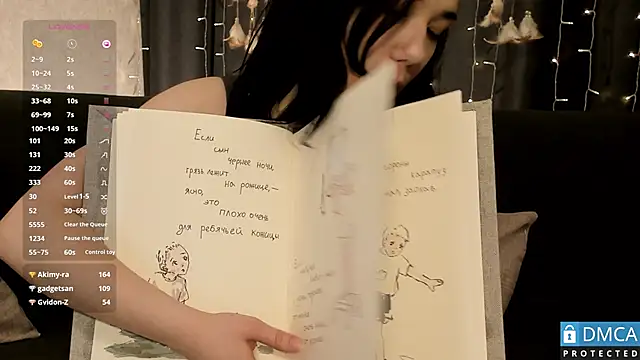 2~9 2s
10~24 5s
25~32 4s
33~68 10s
69~99 7s
100~149 15s
101 20s
131 30s
222 40s
333 60s
30 Level 1-5
52 30~69s
5555 Clear the Queue
1234 Pause the queue
55~75 60s Control toy
Akimy-ra 164
gadgetsan 109
Gvidon-Z 54
Если
сын
чернее ночи
грязь лежит
на рожице,—
ясно,
это
плохо очень
для ребячьей кожицы
карапуз
DMCA
PROTECTED